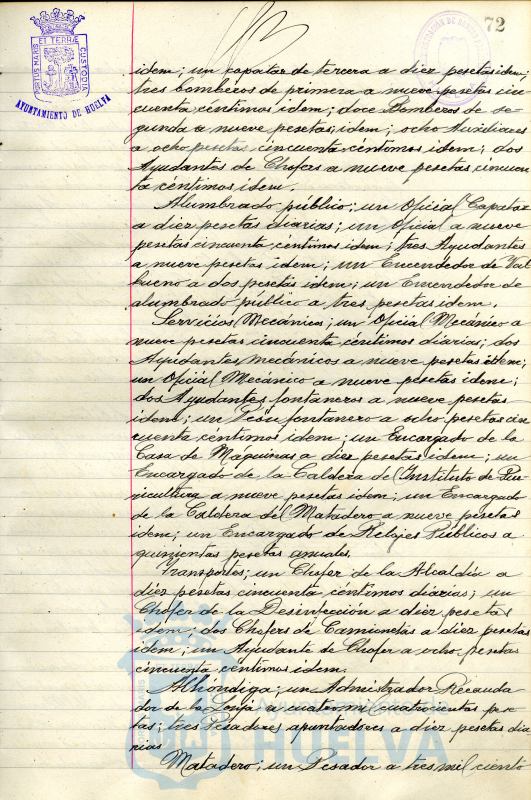 72
PORTUS MARIS ET TERRAE CUSTODIA
AYUNTAMIENTO DE HUELVA
idem; un capataz de tercera a diez pesetas idem;
tres bomberos de primera a nueve pesetas cin-
cuenta céntimos idem; doce Bomberos de se-
gunda a nueve pesetas, idem; ocho Auxiliares
a ocho pesetas cincuenta céntimos idem; dos
Ayudantes de Chofers a nueve pesetas cincuen
ta céntimos idem.
Alumbrado público; un Oficial Capataz
a diez pesetas diarias; un Oficial a nueve
pesetas cincuenta céntimos idem; tres Ayudantes
a nueve pesetas idem; un Encendedor de Val
bueno a dos pesetas idem; un Encendedor de
alumbrado público a tres pesetas idem.
Servicios Mecánicos; un Oficial Mecánico a
nueve pesetas cincuenta céntimos diarias; dos
Ayudantes mecánicos a nueve pesetas idem;
un Oficial Mecánico a nueve pesetas idem;
dos Ayudantes fontaneros a nueve pesetas
idem; un Peón fontanero a ocho pesetas cin
cuenta céntimos idem; un Encargado de la
Casa de Máquinas a diez pesetas idem; un
Encargado de la Caldera del Instituto de Pue
ricultura a nueve pesetas idem; un Encargado
de la Caldera del Matadero a nueve pesetas
idem; un Encargado de Relojes Públicos a
quinientas pesetas anuales.
Transportes; un Chofer de la Alcaldía a
diez pesetas cincuenta céntimos diarias; un
Chofer de la Desinfección a diez pesetas
idem; dos Chofers de Camionetas a diez pesetas
idem; un Ayudante de Chofer a ocho pesetas
cincuenta céntimos idem.
Alhóndiga; un Admitrador Recauda
dor de la Lonja a cuatro mil cuatrocientas pese
tas; tres Pesadores apuntadores a diez pesetas dia
rias
Matadero; un Pesador a tres mil ciento
Ayuntamiento de
HUELVA